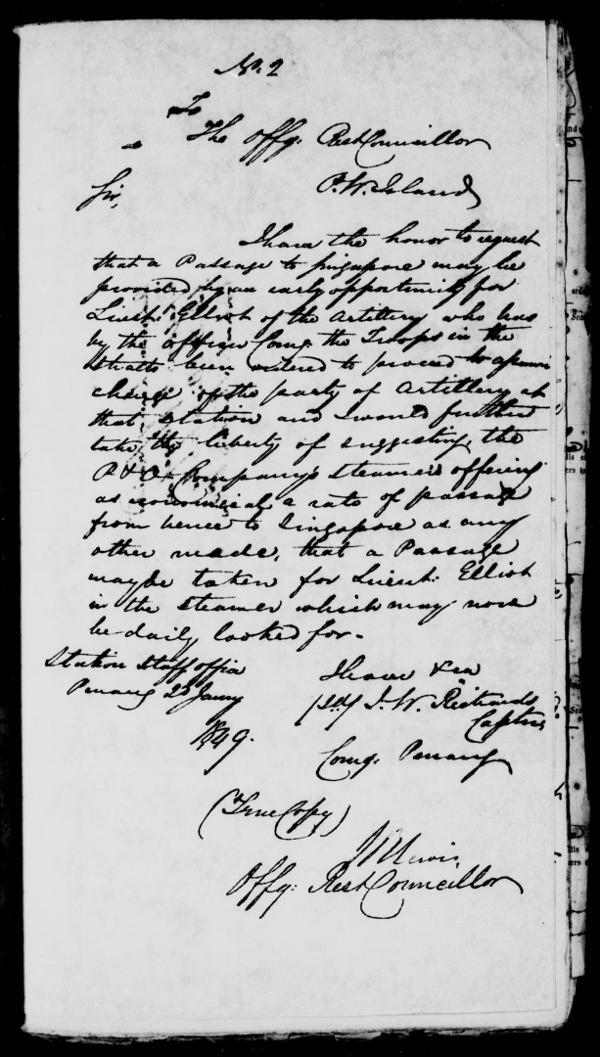 No. 2
To
The Offg. Rest Councillor
P. W. Island
Sir,
I have the honor to request
that a Passage to Singapore may be
provided by an early opportunity for
Lieut. Elliot of the Artillery who has
by the Officer Comg. the Troops in the
Straits been ordered to proceed to assume
charge of the party of Artillery at
that Station and I would further
take the liberty of suggesting the
P & O Company's Steamers offering
as economical a rate of passage
from hence to Singapore as any
other made, that a Passage
may be taken for Lieut. Elliot
in the Steamer which may now
be daily looked for.
Station Staff Office
Penang 22 Jany
1849.
I have &ca
J. W. Richards
Captn
Comg. Penang
(True Copy)
Lewis
Offg. Rest Councillor